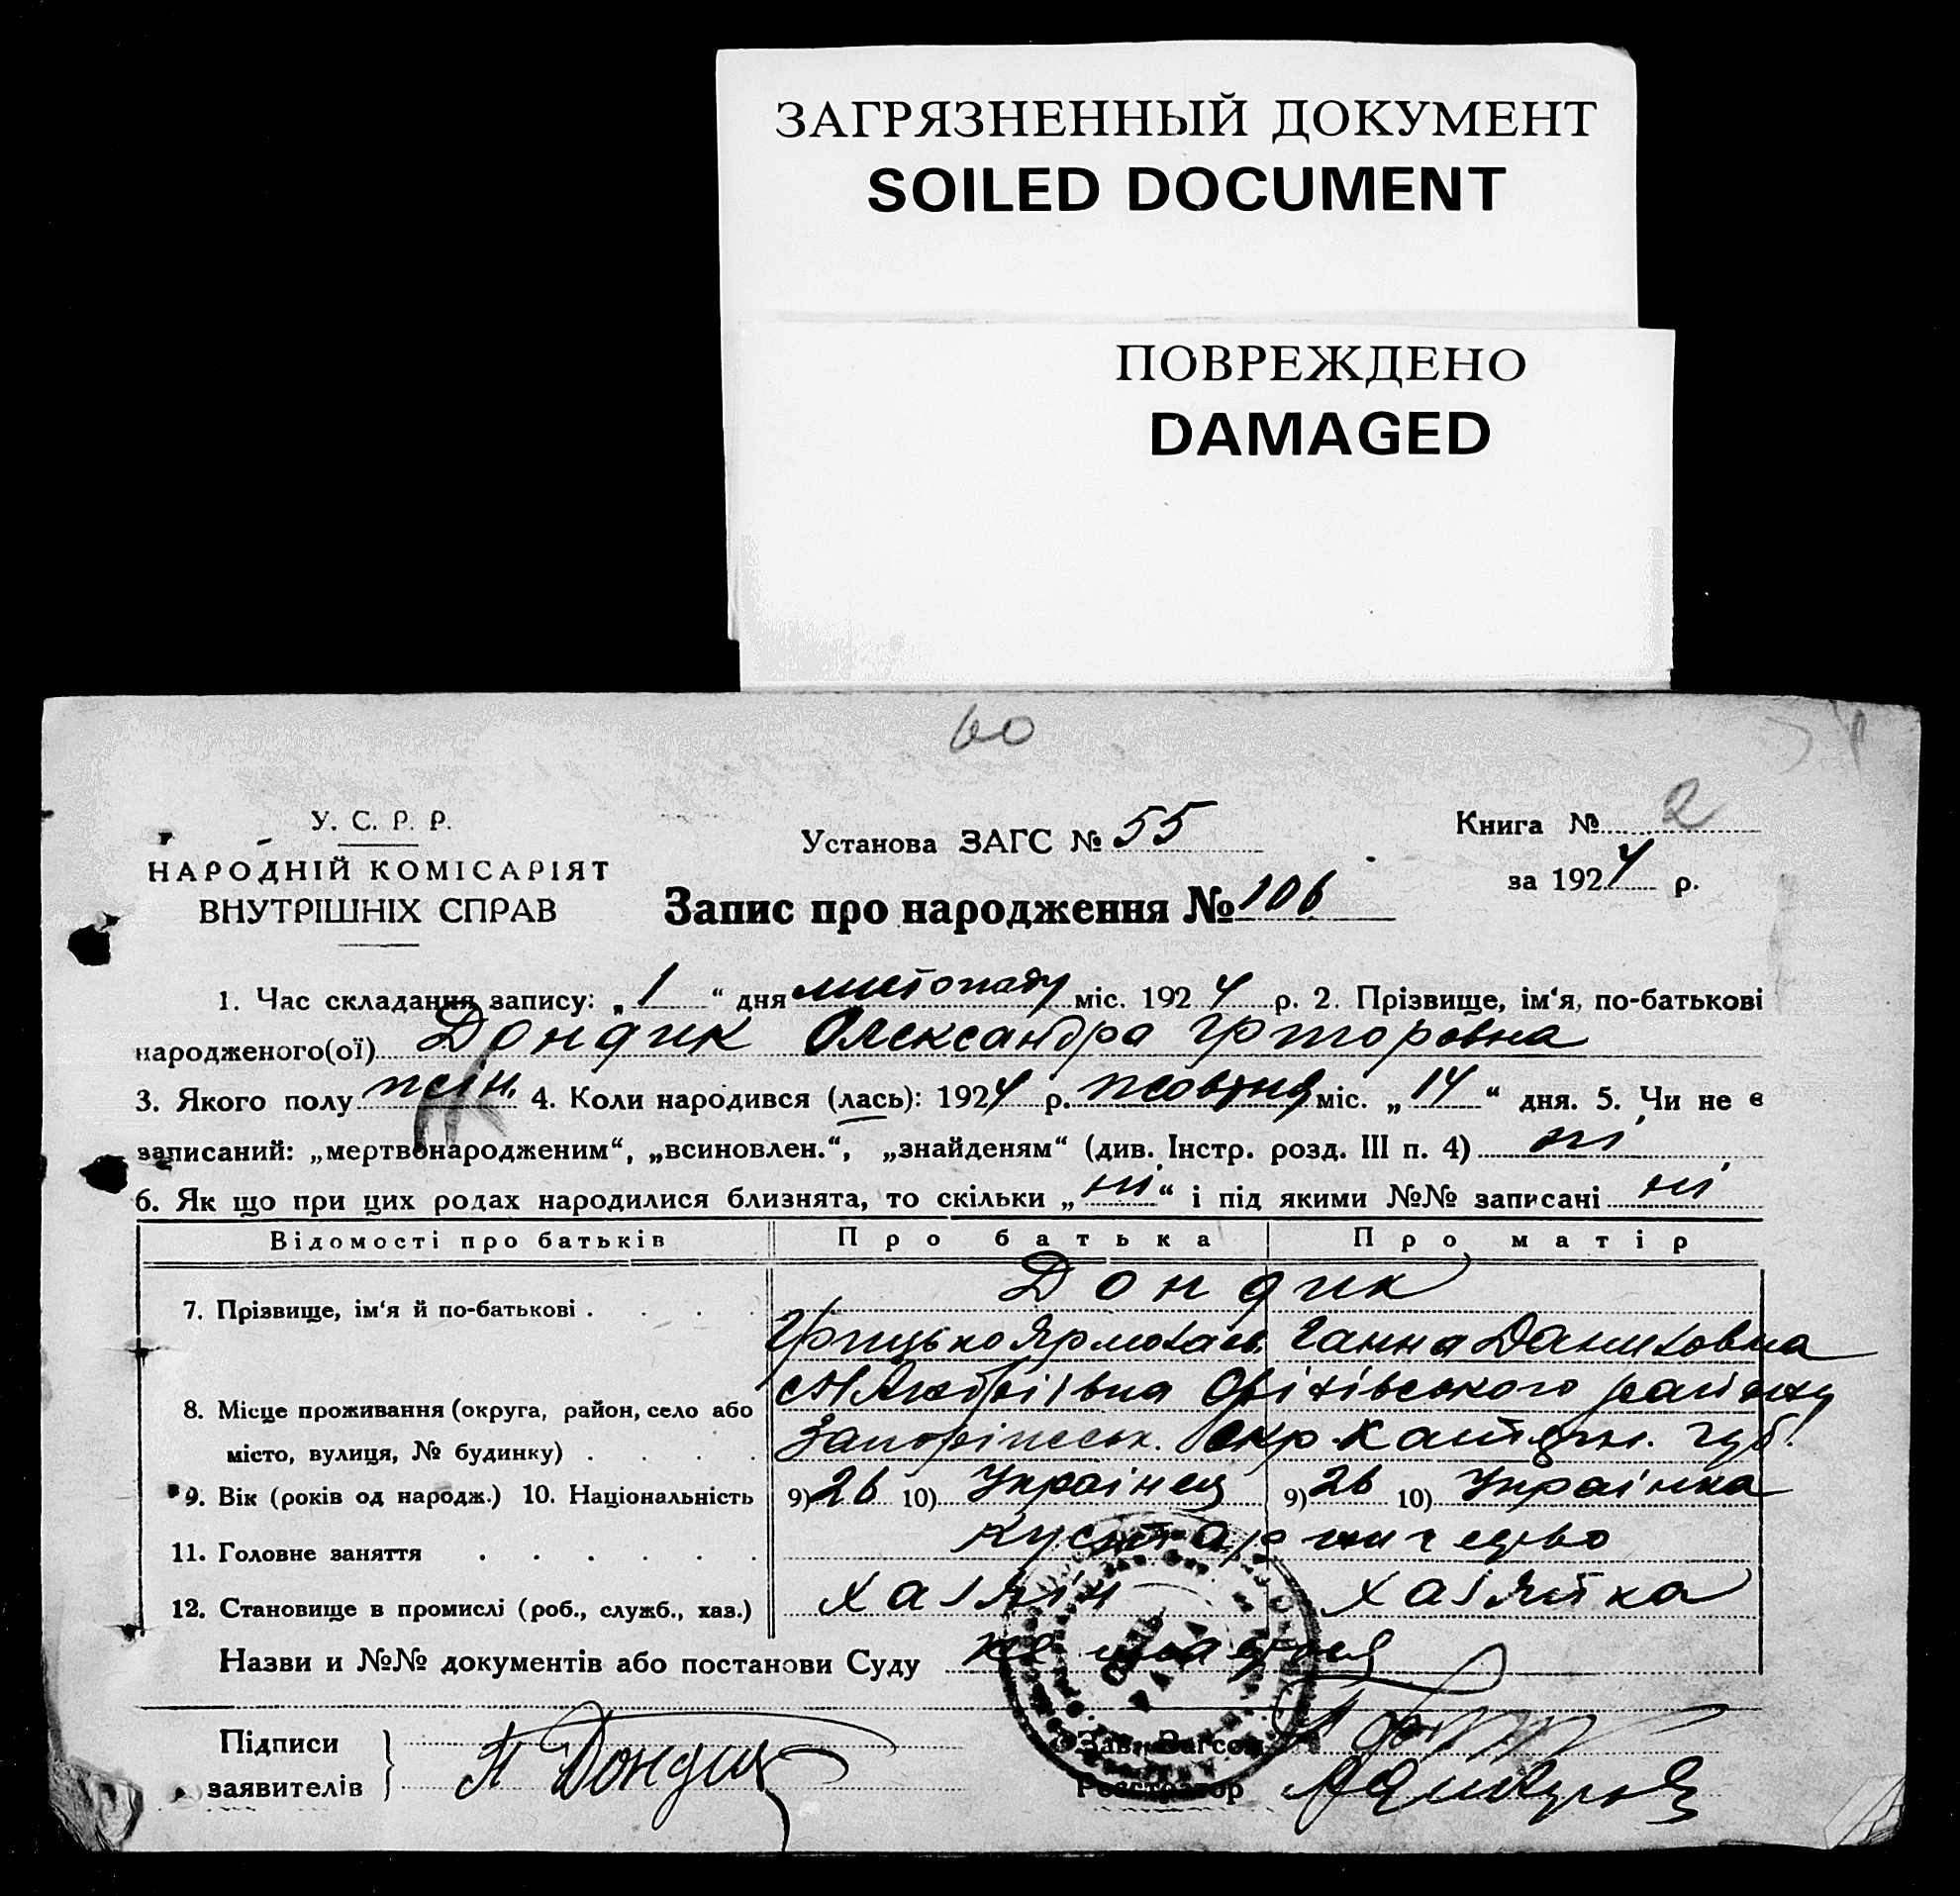 ЗАГРЯЗНЕННЫЙ ДОКУМЕНТ
SOILED DOCUMENT
ПОВРЕЖДЕНО
DAMAGED
60
У. С. Р. Р.
НАРОДНІЙ КОМІСАРІЯТ
ВНУТРІШНІХ СПРАВ
Установа ЗАГС № 55
Запис про народження № 106
Книга № 2
за 1924 р.
1. Час складання запису: „1“ дня листопаду міс. 1924 р. 2. Прізвище, ім'я, по-батькові
народженого(ої) Дондик Олександра Григоровна
3. Якого полу жін. 4. Коли народився (лась): 1924 р. жовтня міс. „14“ дня. 5. Чи не є
записаний: „мертвонародженим“, „всиновлен.“, „знайденям“ (див. Інстр. розд. III п. 4) ні
6. Як що при цих родах народилися близнята, то скільки „ні“ і під якими №№ записані ні
Відомості про батьків Про батька Про матір
7. Прізвище, ім'я й по-батькові . . . . Дондик
Грицько Ярмолаєв. Ганна Даниловна
8. Місце проживання (округа, район, село або Оріхівського району
місто, вулиця, № будинку) . . . . Запоріжськ. Окр. Катерин. губ.
9. Вік (років од народж.) 10. Національність 9) 26 10) Українец 9) 26 10) Українка
11. Головне заняття . . . . . . Кустарничество
12. Становище в промислі (роб., служб., хаз.) Хазяїн Хазяйка
Назви и №№ документів або постанови Суду
Підписи
заявителів
Дондик
Зав. Загсом
Реєстратор